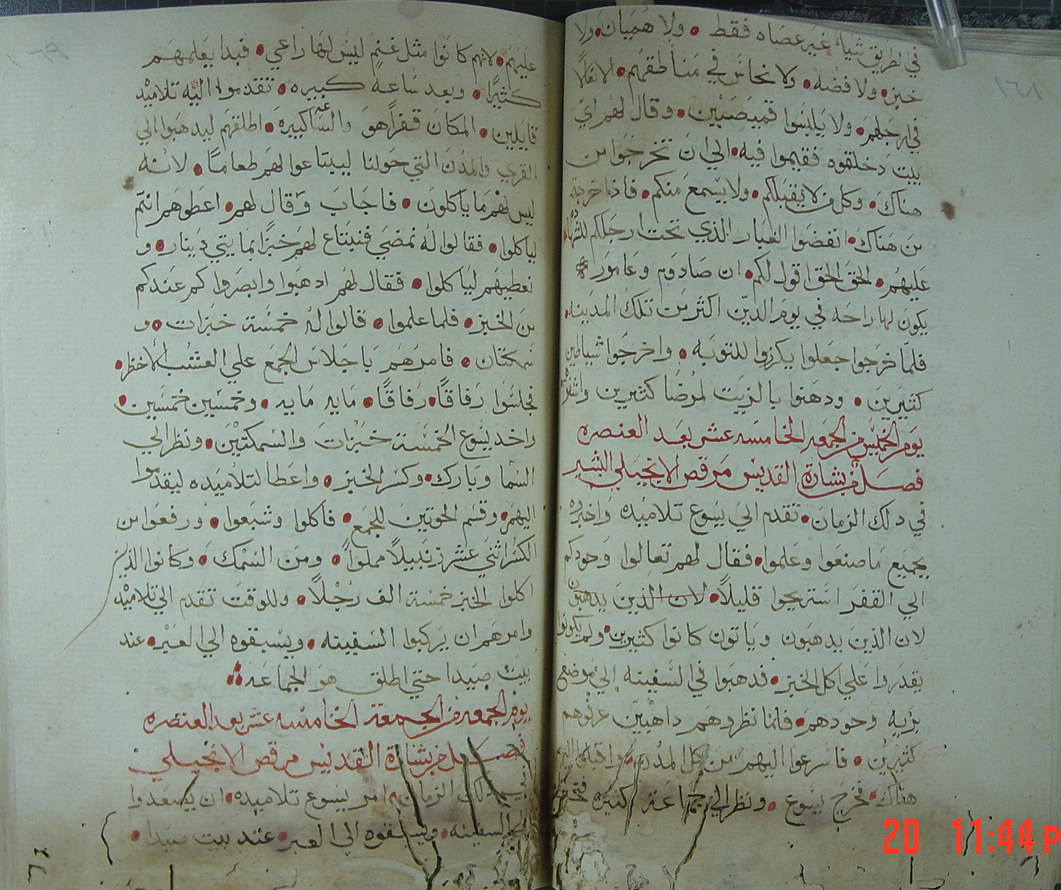 ١٦٨
في لطريق شياء غير عصاه فقط • ولا هميان • ولا
خبز • ولا فضه • ولا نحاس في مناطقهم • الا نعلا
في ارجلهم • ولا يلبسوا قميصين • وقال لهم اي
بيت دخلتوه فقيموا فيه • الي ان تخرجوا من
هناك • وكل من لا يقبلكم • ولا يسمع منكم • فاذا خرجتم
من هناك • انفضوا الغبار الذي تحت ارجلكم للشهاده
عليهم • الحق الحق اقول لكم • ان صادوم وعامور
يكون لها راحه في يوم الدين اكثر من تلك المدينه •
فلما خرجوا جعلوا يكرزوا للتوبه • واخرجوا شياطين
كثيرين • ودهنوا بالزيت لمرضا كثيرين
يوم الخميس من الجمعه الخامسه عشر بعد العنصره
فصل من بشارة القديس مرقص الانجيلي البشير
في دلك الزمان • تقدم الي يسوع تلاميده واخبروه
بجميع ما صنعوا وعلموا • فقال لهم تعالوا وحودكم
الي القفر استريحوا قليلاً • لان الذين يدهبون
لان الذين يدهبون وياتون كانوا كثيرين • ولم يكونوا
يقدروا علي اكل الخبز • فدهبوا في السفينه الي موضع
بريه وحودهم • فلما نظروهم داهبين عرفوهم
كثيرين • فاسرعوا اليهم من كل المدن
هناك • فخرج يسوع • ونظر الي جماعة كثيره فتحنن
عليهم • لانهم كانوا مثل غنم ليس لها راعي • فبدا يعلمهم
كثيرًا • وبعد ساعه كبيره • تقدموا اليه تلاميد
قايلين • المكان قفرًا هو والساعه كبيره • اطلقهم ليدهبوا الي
القري والمدن التي حولنا ليبتاعوا لهم طعامًا • لانه
ليس لهم ما ياكلون • فاجاب وقال لهم • اعطوهم انتم
لياكلوا • فقالوا له نمضي فنبتاع لهم خبزًا بمايتي دينار • و
نعطيهم لياكلوا • فقال لهم ادهبوا وابصروا كم عندكم
من الخبز • فلما علموا • قالوا له خمسة خبزات • و
سمكتان • فامرهم باجلاس الجمع علي العشب الاخظر •
فجلسوا رفاقًا • رفاقًا • مايه مايه • وخمسين خمسين •
واخد يسوع الخمسة خبزات والسمكتين • ونظر الي
السما وبارك • وكسر الخبز • واعطا لتلاميده ليقدموا
اليهم • وقسم الحوتين للجمع • فاكلوا وشبعوا • ورفعوا من
الكسر اثني عشر زنبيلاً مملواً • ومن السمك • وكانوا الذين
اكلوا الخبز خمسة الف رجلاً • وللوقت تقدم الي تلاميد
وامرهم ان يركبوا السفينه • ويسبقوه الي العبر • عند
بيت صيدا حتي اطلق هو الجماعه
يوم الجمعه من الجمعة الخامسه عشر بعد العنصره
فصل من بشارة القديس مرقص الانجيلي
في دلك الزمان امر يسوع تلاميده • ان يصعدوا
الي السفينه • ويسبقوه الي العبر • عند بيت صيدا •
20 11:44 P